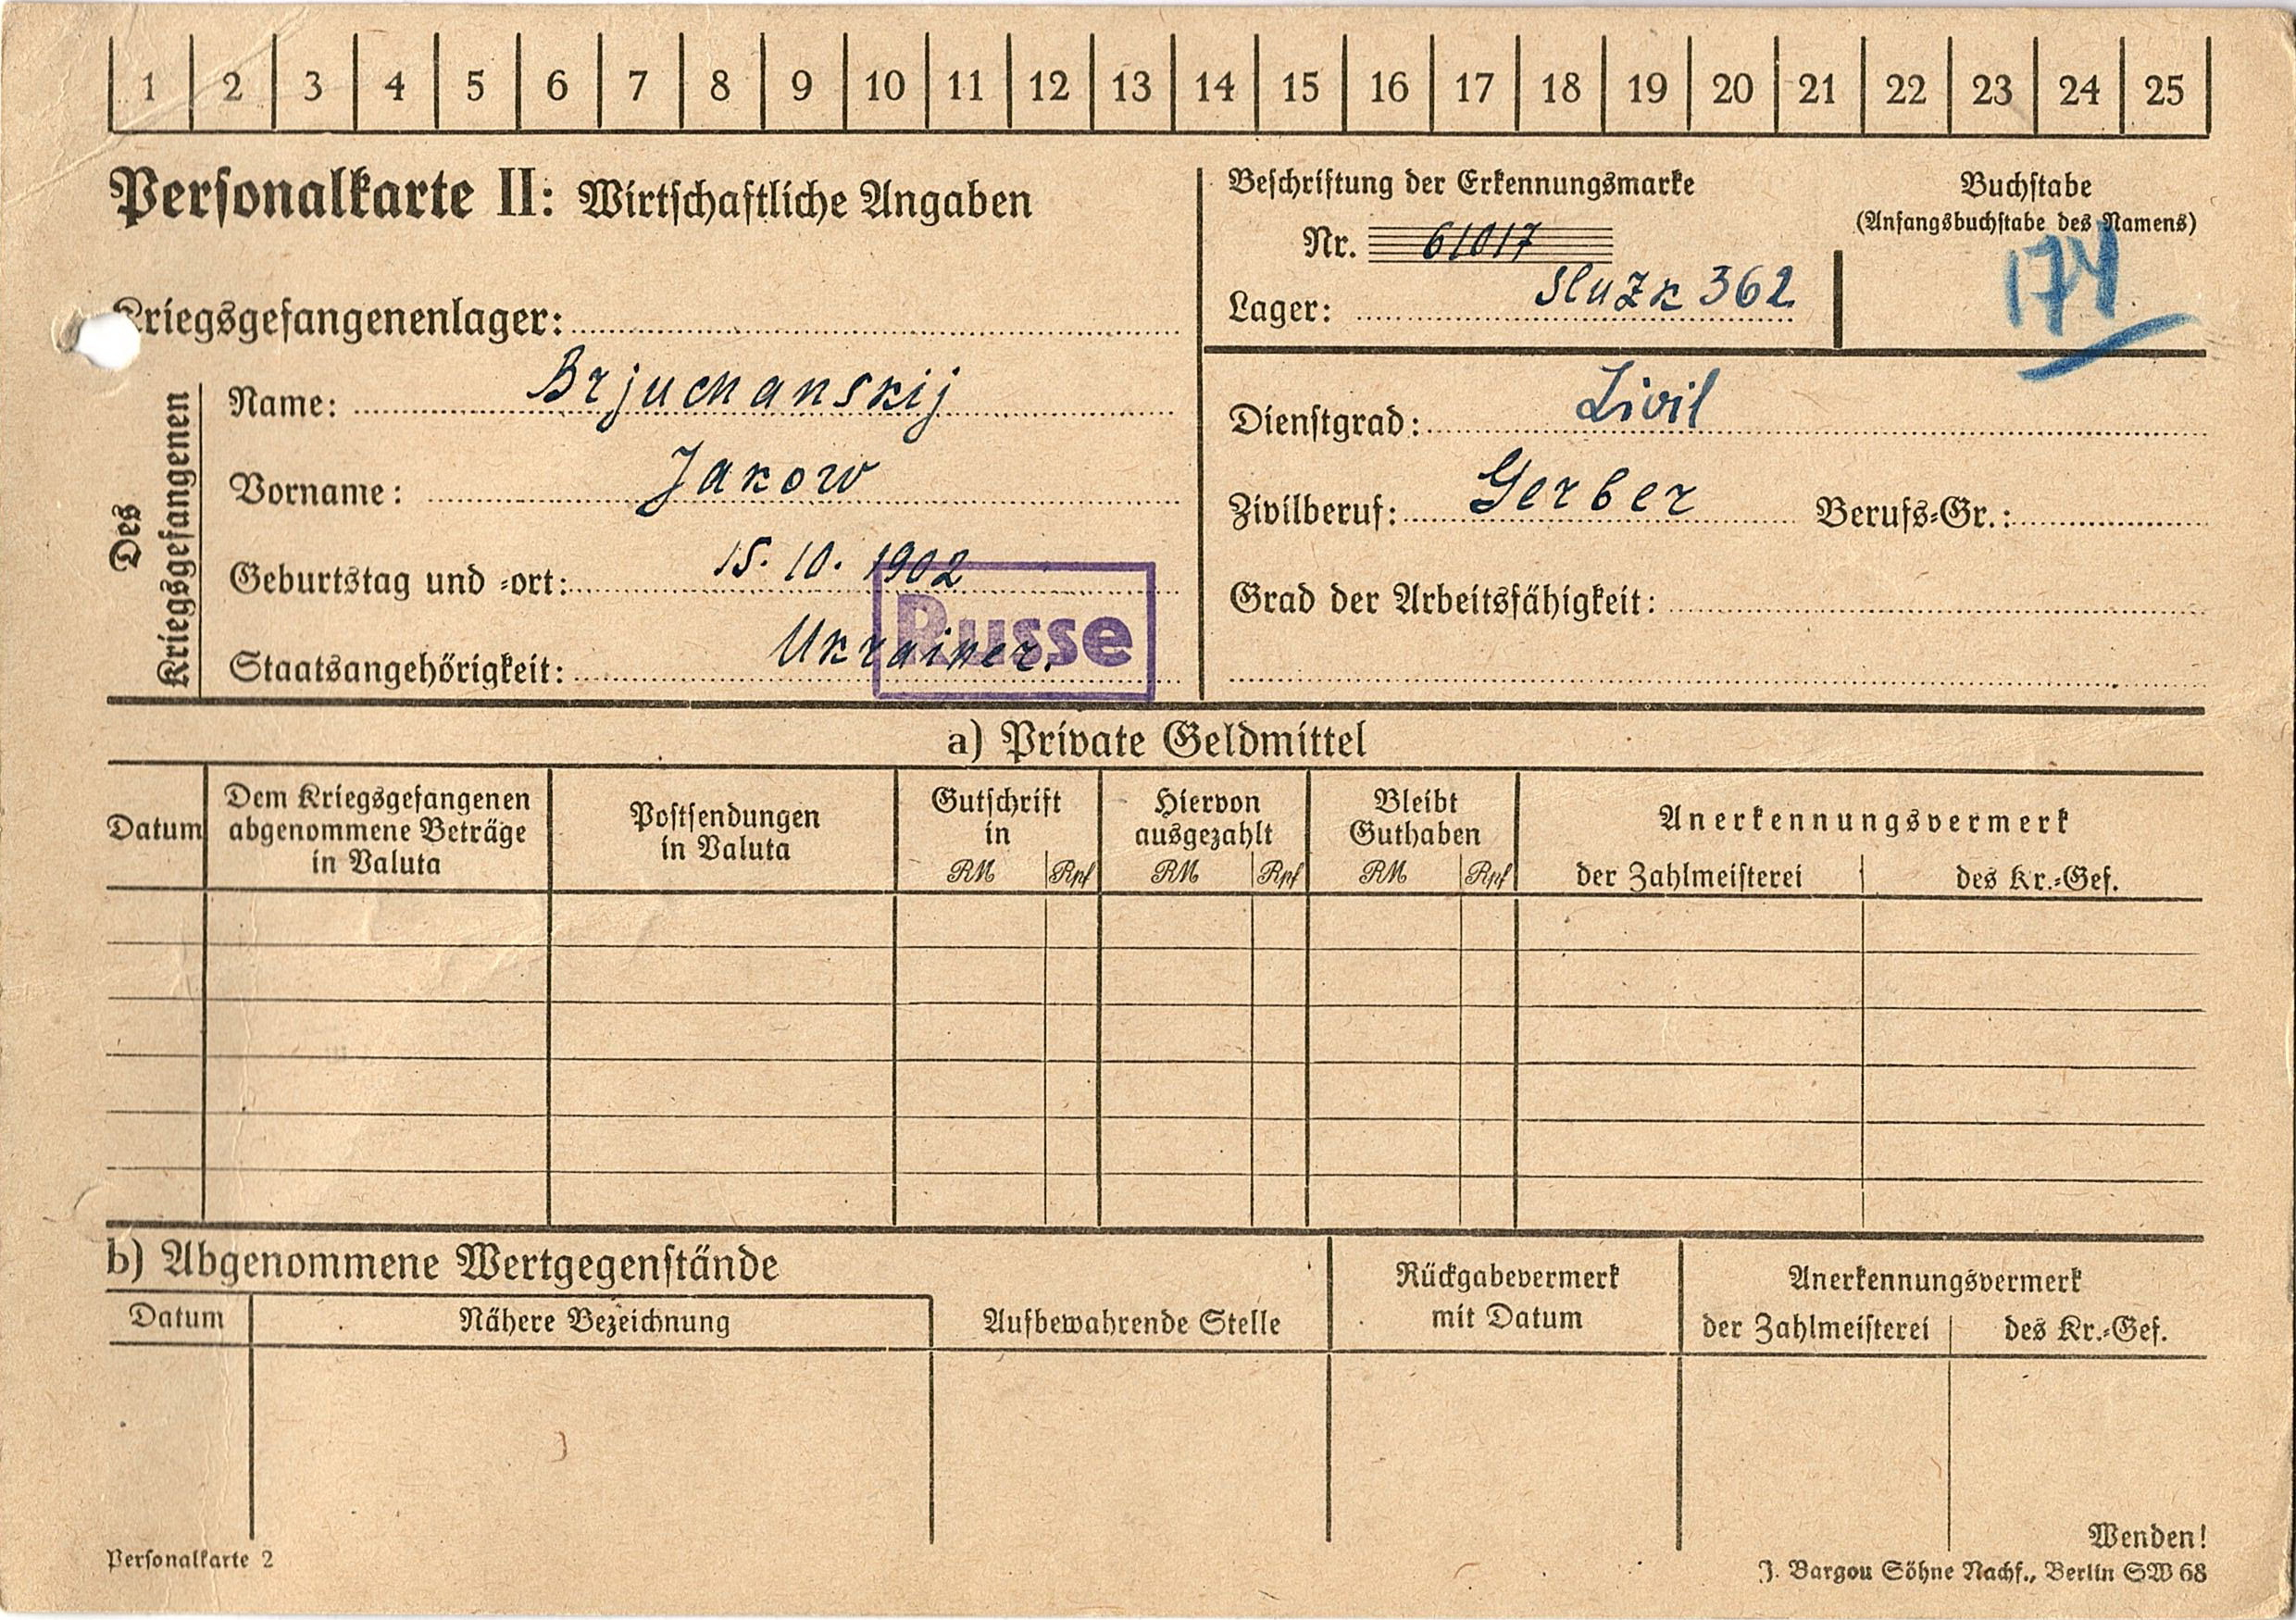 1 2 3 4 5 6 7 8 9 10 11 12 13 14 15 16 17 18 19 20 21 22 23 24 25
Personalkarte II: Wirtschaftliche Angaben
Beschriftung der Erkennungsmarke
Nr. 61017
Lager: Sluzk 362
Buchstabe
(Anfangsbuchstabe des Namens)
174
Kriegsgefangenenlager:
Des Kriegsgefangenen
Name: Brjuchanskij
Vorname: Jakow
Geburtstag und -ort: 15. 10. 1902
Staatsangehörigkeit: Ukrainer.
Russe
Dienstgrad: Zivil
Zivilberuf: Gerber Berufs-Gr.:
Grad der Arbeitsfähigkeit:
a) Private Geldmittel
Datum
Dem Kriegsgefangenen
abgenommene Beträge
in Valuta
Postsendungen
in Valuta
Gutschrift
in
RM Rpf
Hiervon
ausgezahlt
RM Rpf
Bleibt
Guthaben
RM Rpf
Anerkennungsvermerk
der Zahlmeisterei des Kr.-Gef.
b) Abgenommene Wertgegenstände
Datum
Nähere Bezeichnung
Aufbewahrende Stelle
Rückgabevermerk
mit Datum
Anerkennungsvermerk
der Zahlmeisterei des Kr.-Gef.
Wenden!
Personalkarte 2
J. Bargou Söhne Nachf., Berlin SW 68